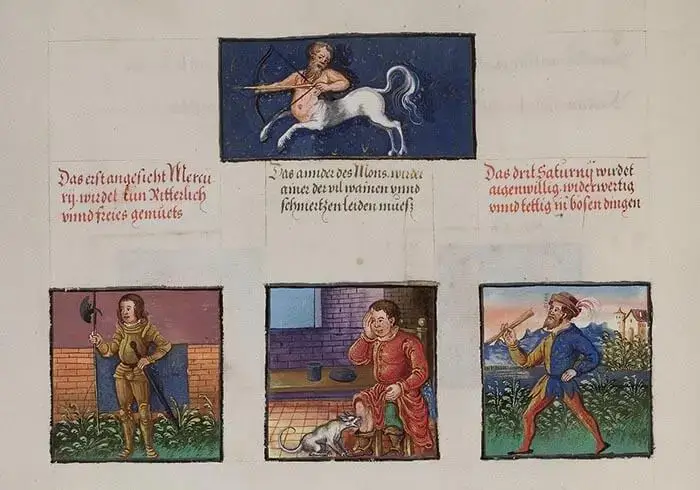 Das erst angesicht Mercu
rij. wirdet kün Ritterlich
vnnd freies gemüets
Das annder des Mons. wirdet
ainer der vil wainen vnnd
schmertzen leiden muesz
Das drit Saturnij wirdet
aigenwillig. widerwertig
vnnd tettig in bösen dingen